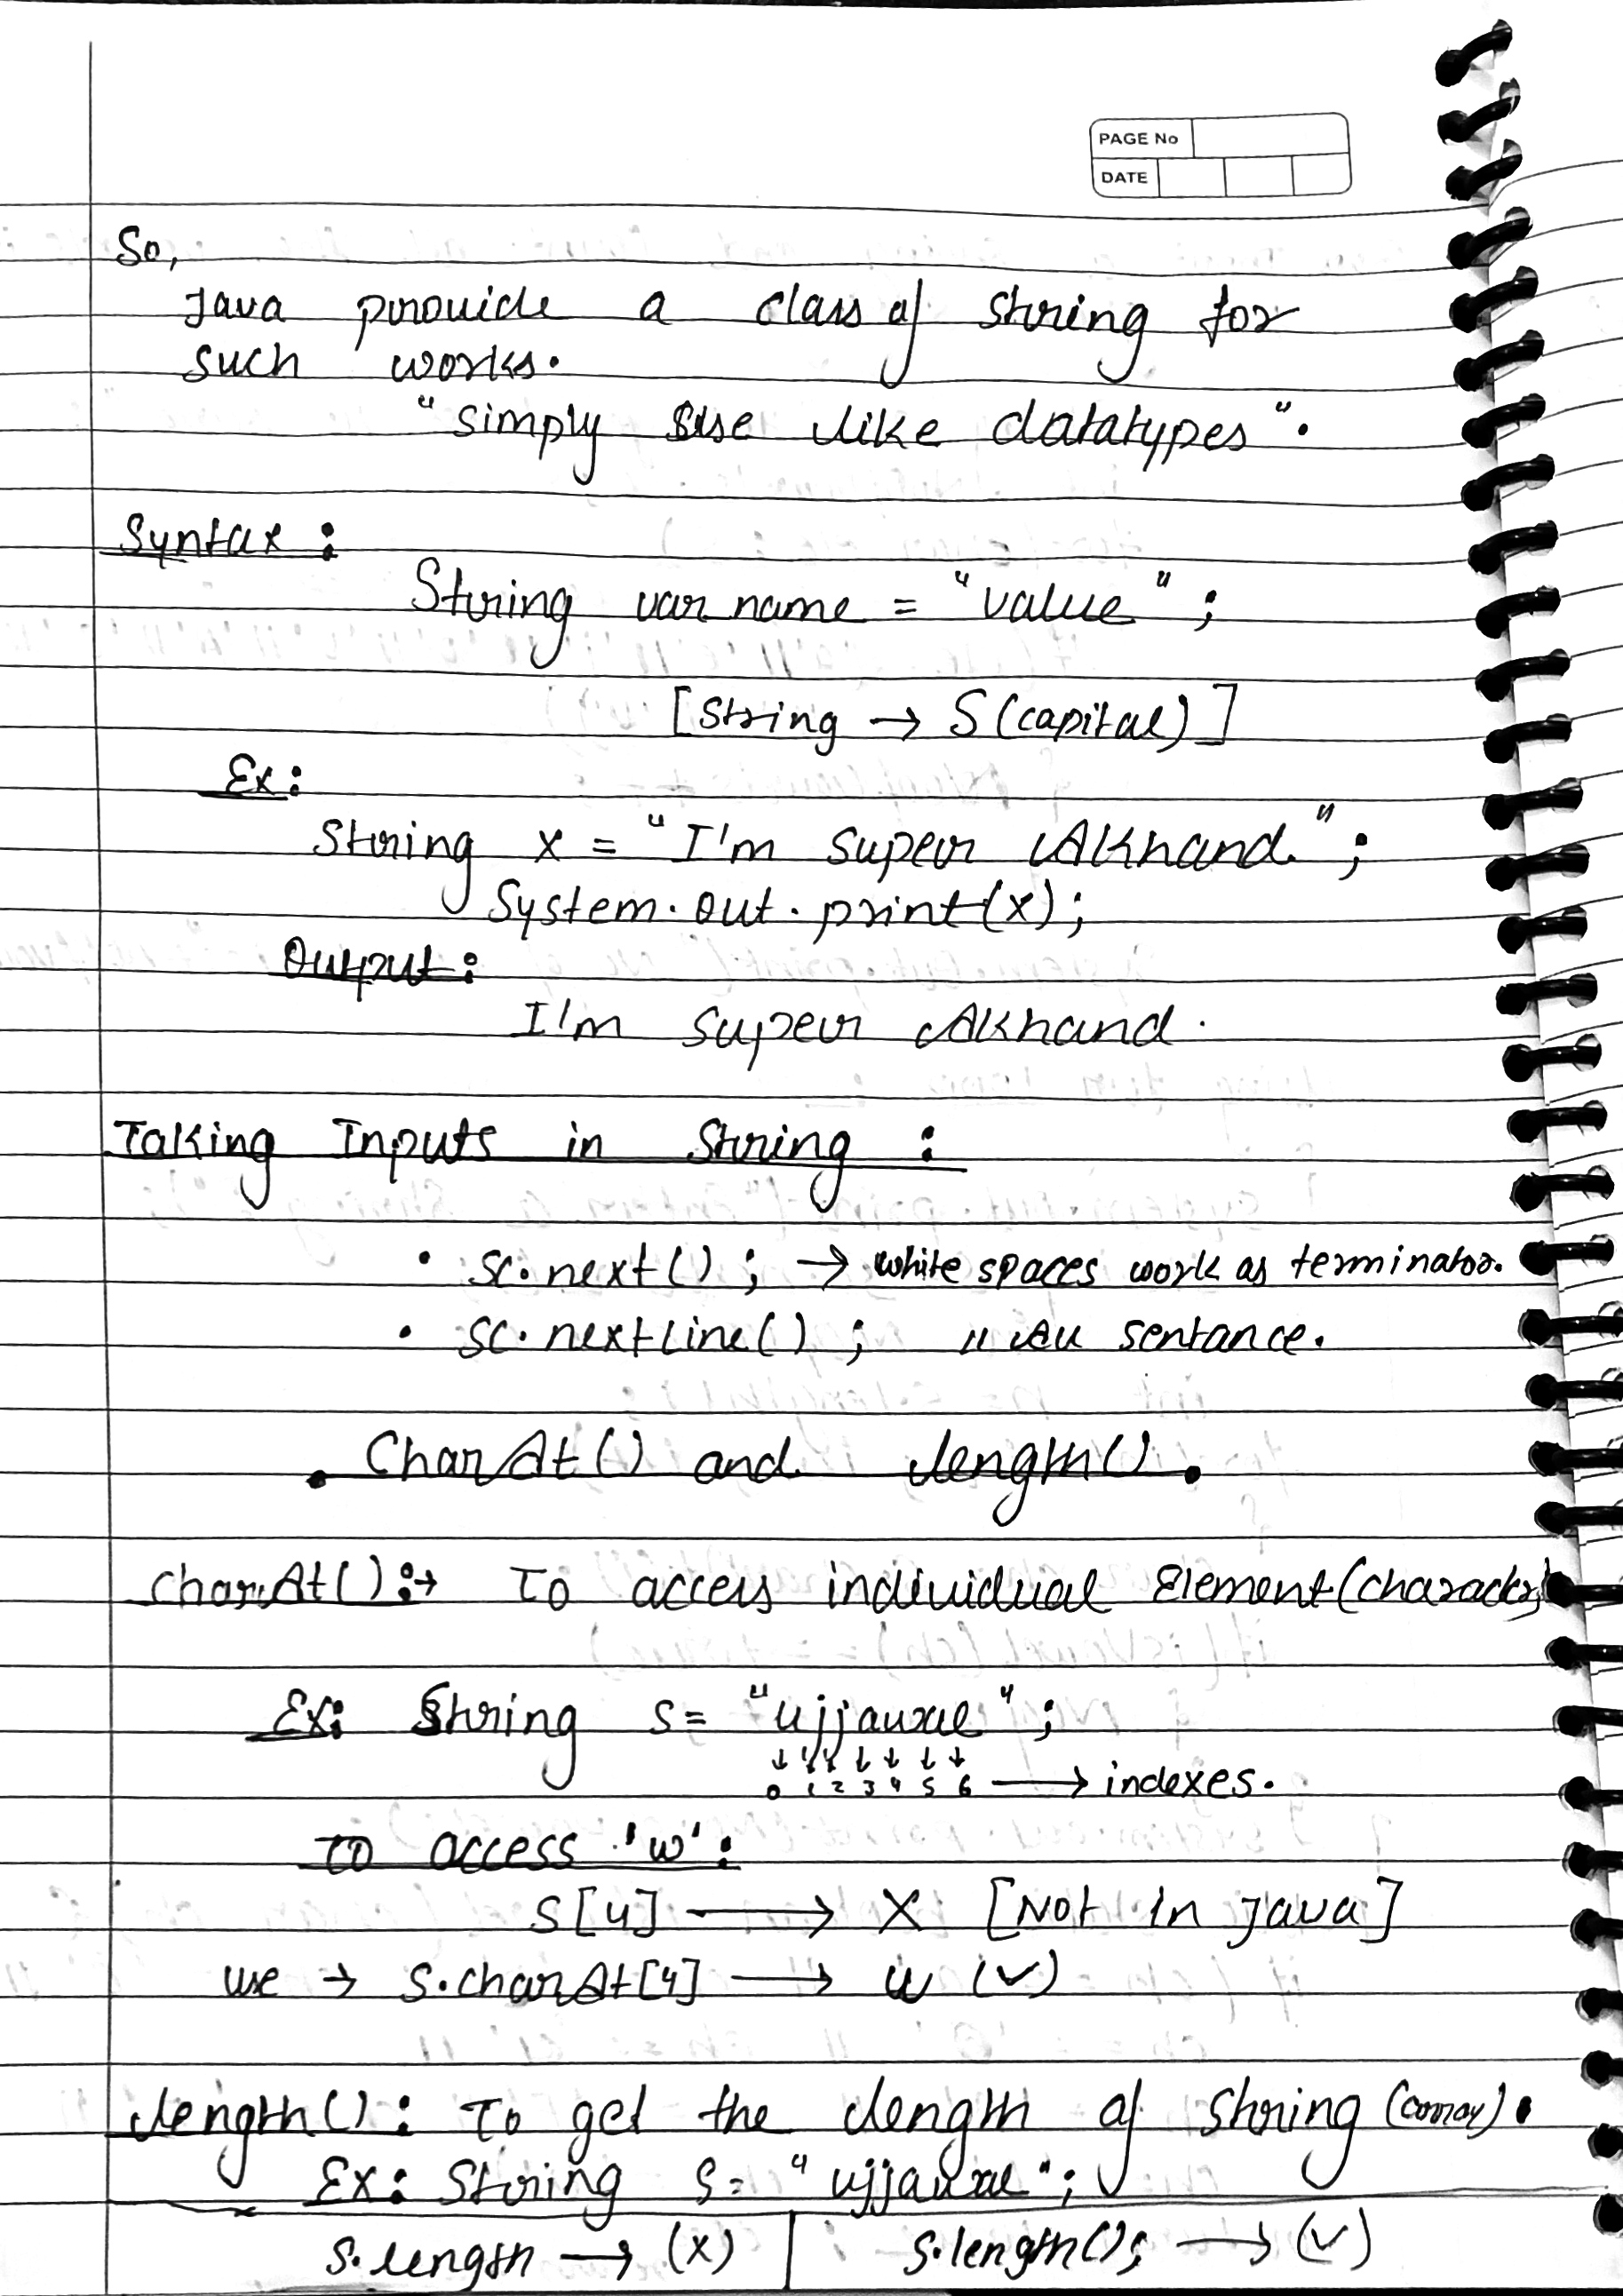 PAGE No
DATE
So,
Java provide a class of string for
such works.
"simply use like datatypes".
Syntax :
String var name = "value" ;
[String → S (capital)]
Ex:
String x = "I'm super Akhand." ;
System.out.print(x);
Output:
I'm super Akhand.
Taking Inputs in String :
• sc.next() ; → white spaces work as terminator.
• sc.nextLine() ; " All sentance.
• CharAt() and length() •
charAt() :→ To access individual Element (character)
Ex: String s = "ujjawal" ;
↓ ↓ ↓ ↓ ↓ ↓ ↓
0 1 2 3 4 5 6 → indexes.
To access 'w' :
S[4] → X [Not in java]
use → S.charAt[4] → w (✓)
length() : To get the length of string (array) .
Ex: String S = "ujjawal" ;
S.length → (x) | S.length(); → (✓)